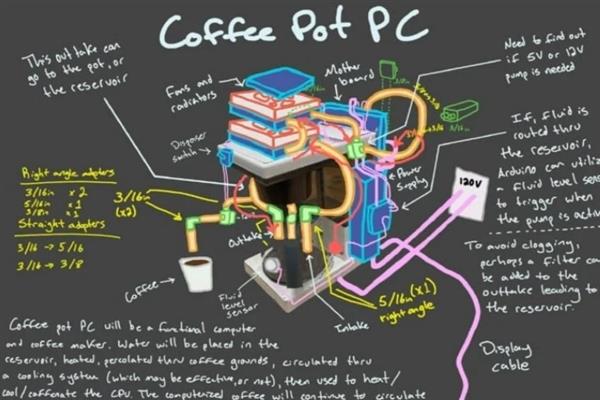 Coffee Pot PC
This out take can
go to the pot, or
the reservoir
Fans and
radiators
Mother
board
Need to find out
if 5V or 12V
pump is needed
Disposer
switch
Power
Supply
If, fluid is
routed thru
the reservoir,
Arduino can utiliz
a fluid level sens
to trigger when
the pump is activ
120V
Right angle adapters
3/16in x 2
5/16in x 1
3/8in x 1
Straight adapters
3/16 → 5/16
3/16 → 3/8
3/16in
(x2)
Outtake
Coffee
Fluid
level
sensor
Intake
5/16in (x1)
right angle
To avoid clogging,
perhaps a filter can
be added to the
outtake leading to
the reservoir.
Display
cable
Coffee pot PC will be a functional computer
and coffee maker. Water will be placed in the
reservoir, heated, percolated thru coffee grounds, circulated thru
a cooling system (which may be effective, or not), then used to heat/
cool/caffenate the CPU. The computerized coffee will continue to circulate